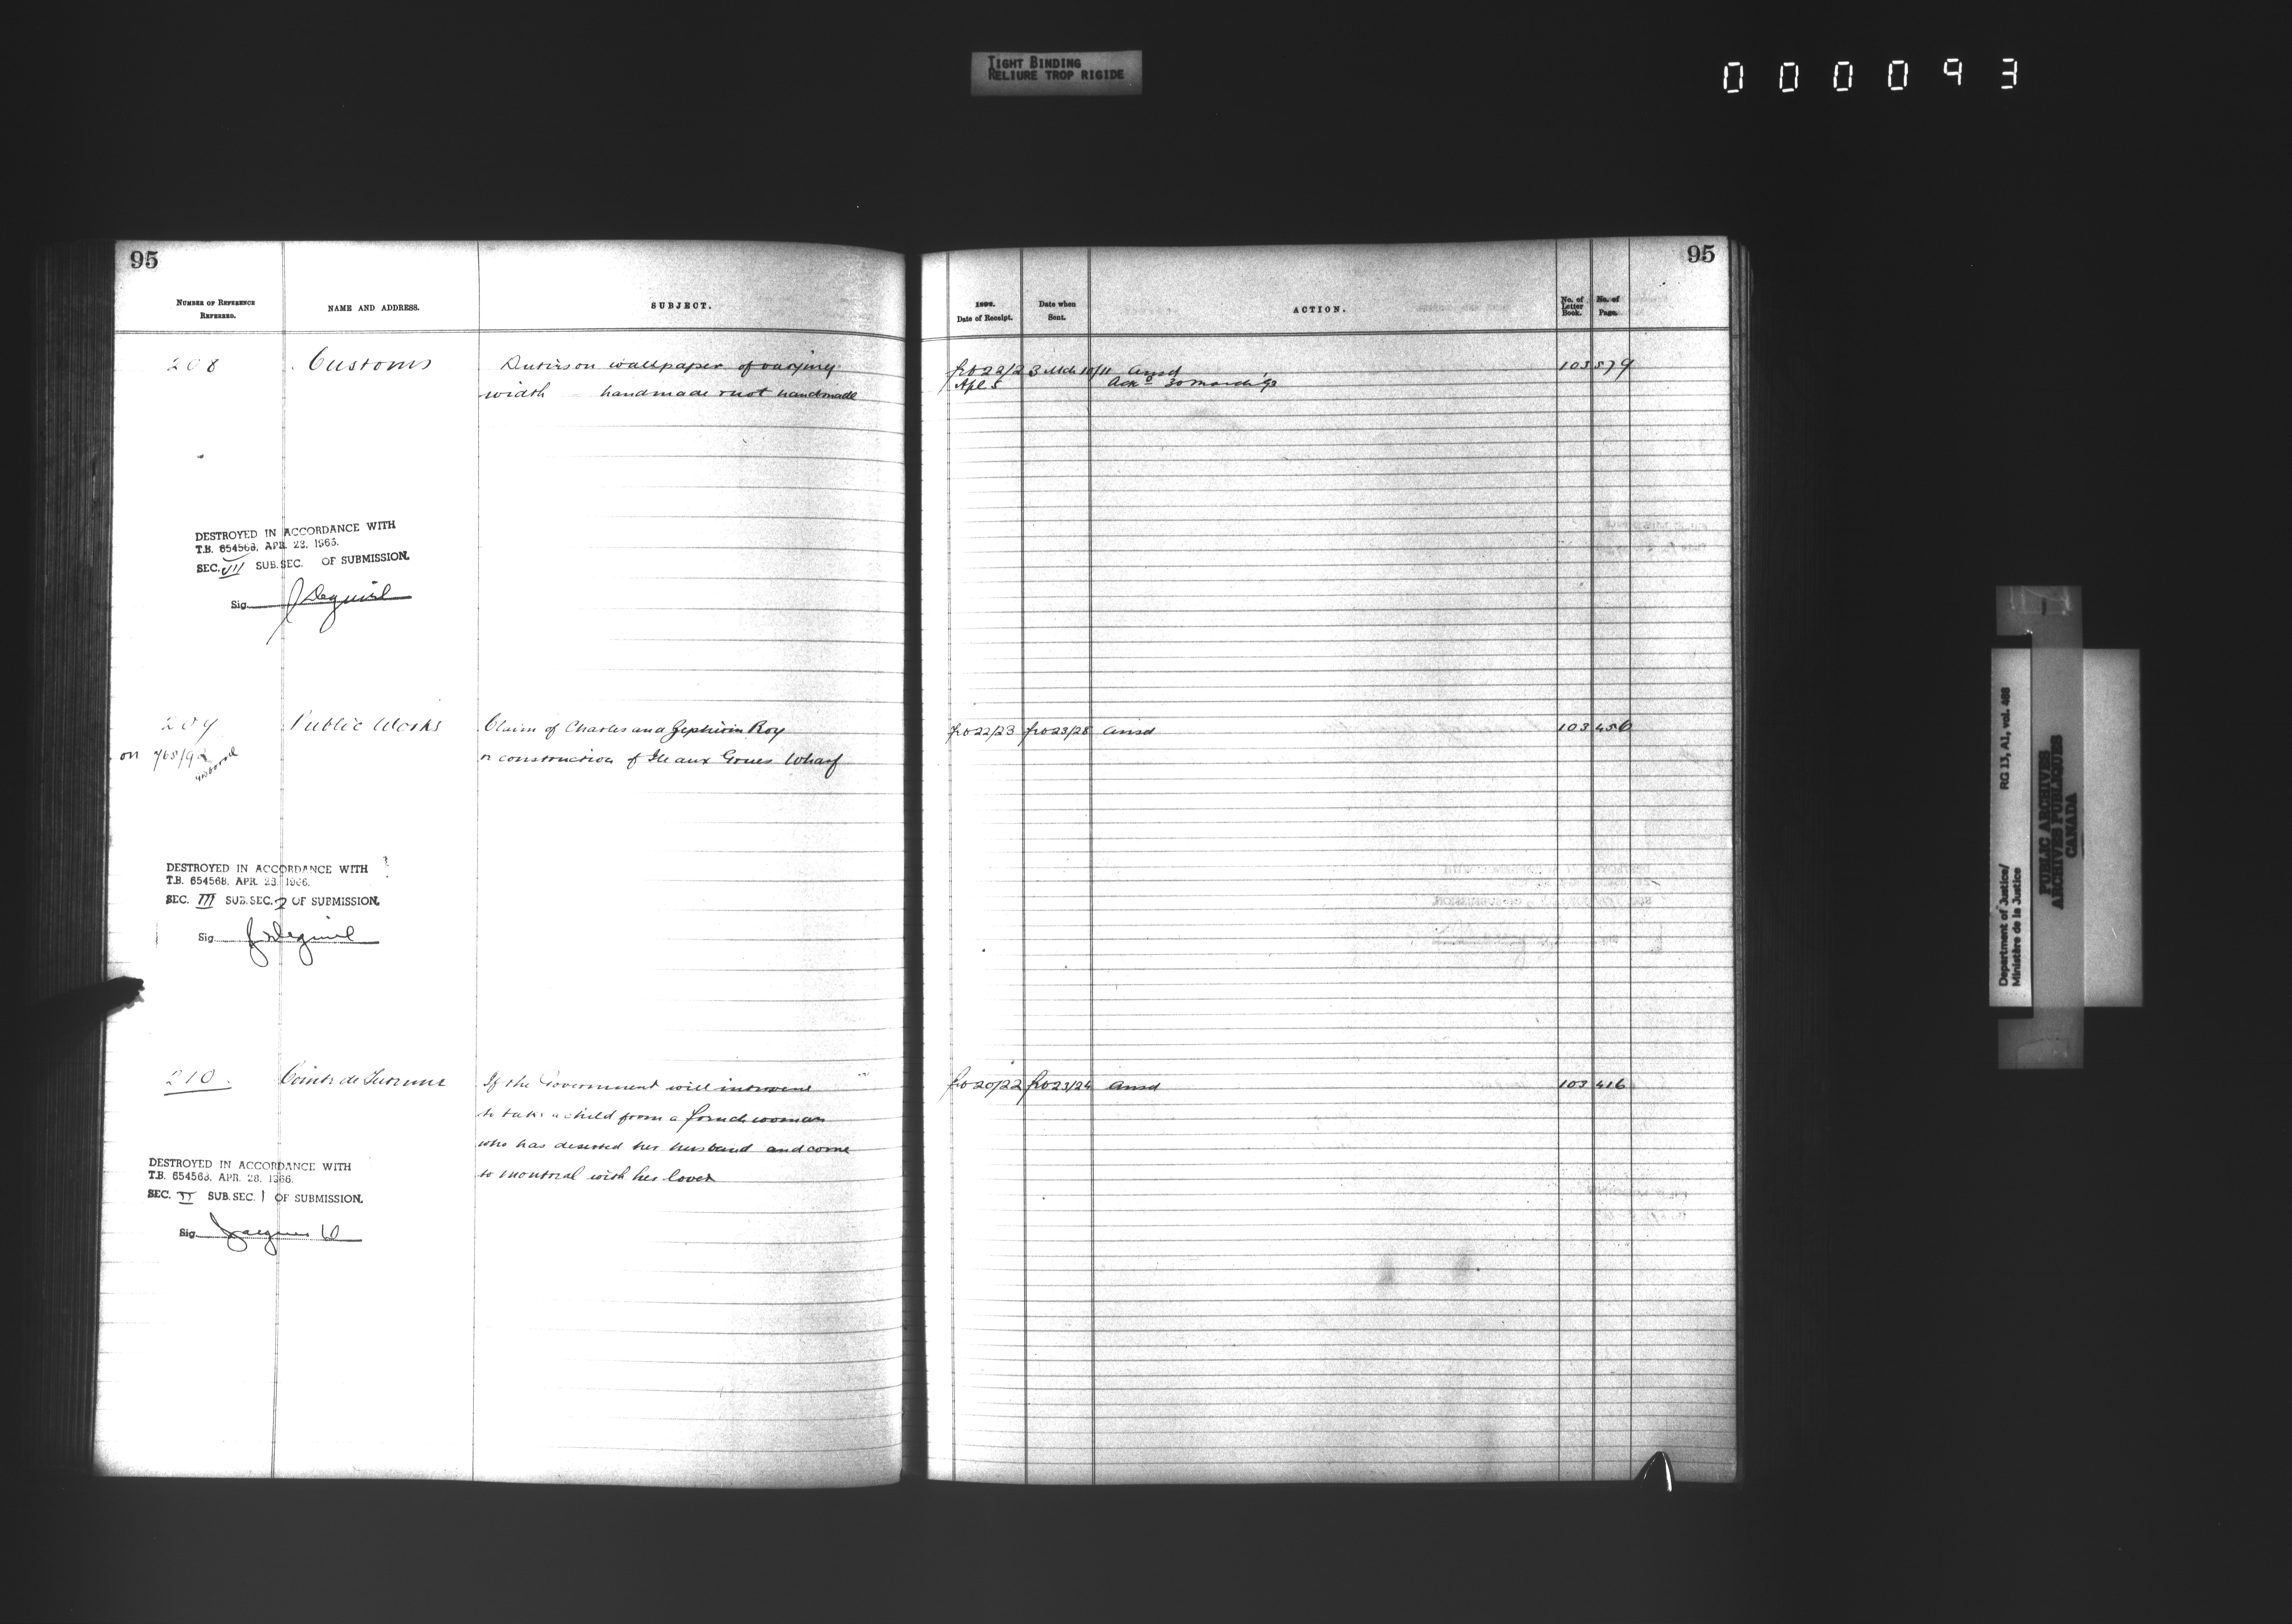 TIGHT BINDING
RELIURE TROP RIGIDE
000093
95
NUMBER OF REFERENCE
REFERRED.
NAME AND ADDRESS.
SUBJECT.
208
Customs
Duties on wallpaper of varying
width handmade & not handmade
DESTROYED IN ACCORDANCE WITH
T.B. 654568, APR. 28, 1966.
SEC. VII SUB.SEC. OF SUBMISSION.
Sig.
209
Public Works
Claim of Charles and Zephirin Roy
on 765/92
re construction of Ile aux Grues Wharf
DESTROYED IN ACCORDANCE WITH
T.B. 654568, APR. 28, 1966.
SEC. III SUB.SEC. 2 OF SUBMISSION.
Sig.
210
Comte de Turenne
If the Government will intervene
to take a child from a French woman
who has deserted her husband and come
to Montreal with her lover
DESTROYED IN ACCORDANCE WITH
T.B. 654568, APR. 28, 1966.
SEC. VI SUB.SEC. 1 OF SUBMISSION.
Sig.
95
Date of Receipt.
Date when
Sent.
ACTION.
No. of
Letter
Book.
No. of
Page.
22/23 Mch 10/11 Ansd 103 579
Apl 5 Ack 30 March
22/23 23/28 Ansd 103 456
20/22 23/24 Ansd 103 416
Department of Justice/
Ministère de la Justice
RG 13, A1, vol. 468
PUBLIC ARCHIVES
ARCHIVES PUBLIQUES
CANADA